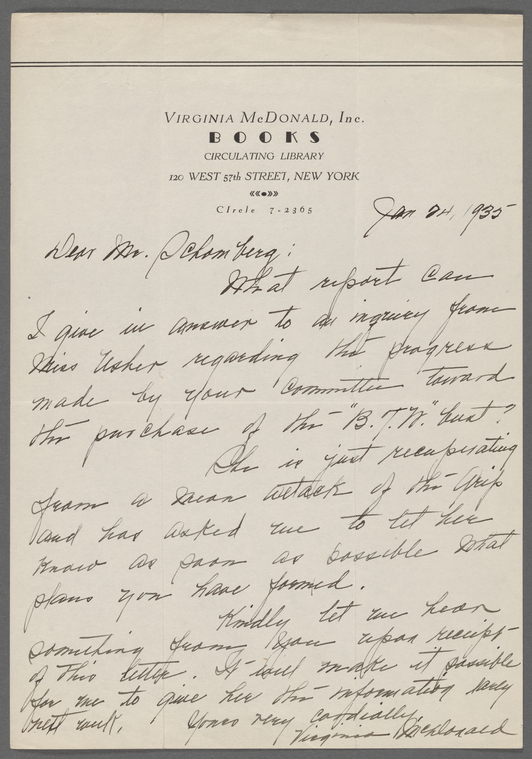 VIRGINIA McDONALD, Inc.
BOOKS
CIRCULATING LIBRARY
120 WEST 57th STREET, NEW YORK
CIrcle 7-2365
Jan 24, 1935
Dear Mr. Schomberg:
What report can
I give in answer to an inquiry from
Miss Usher regarding the progress
made by your committee toward
the purchase of the "B.T.W." bust?
She is just recuperating
from a mean attack of the Grip
and has asked me to let her
know as soon as possible what
plans you have formed.
Kindly let me hear
something from you upon receipt
of this letter. It will make it possible
for me to give her the information early
next week. Yours very cordially
Virginia McDonald